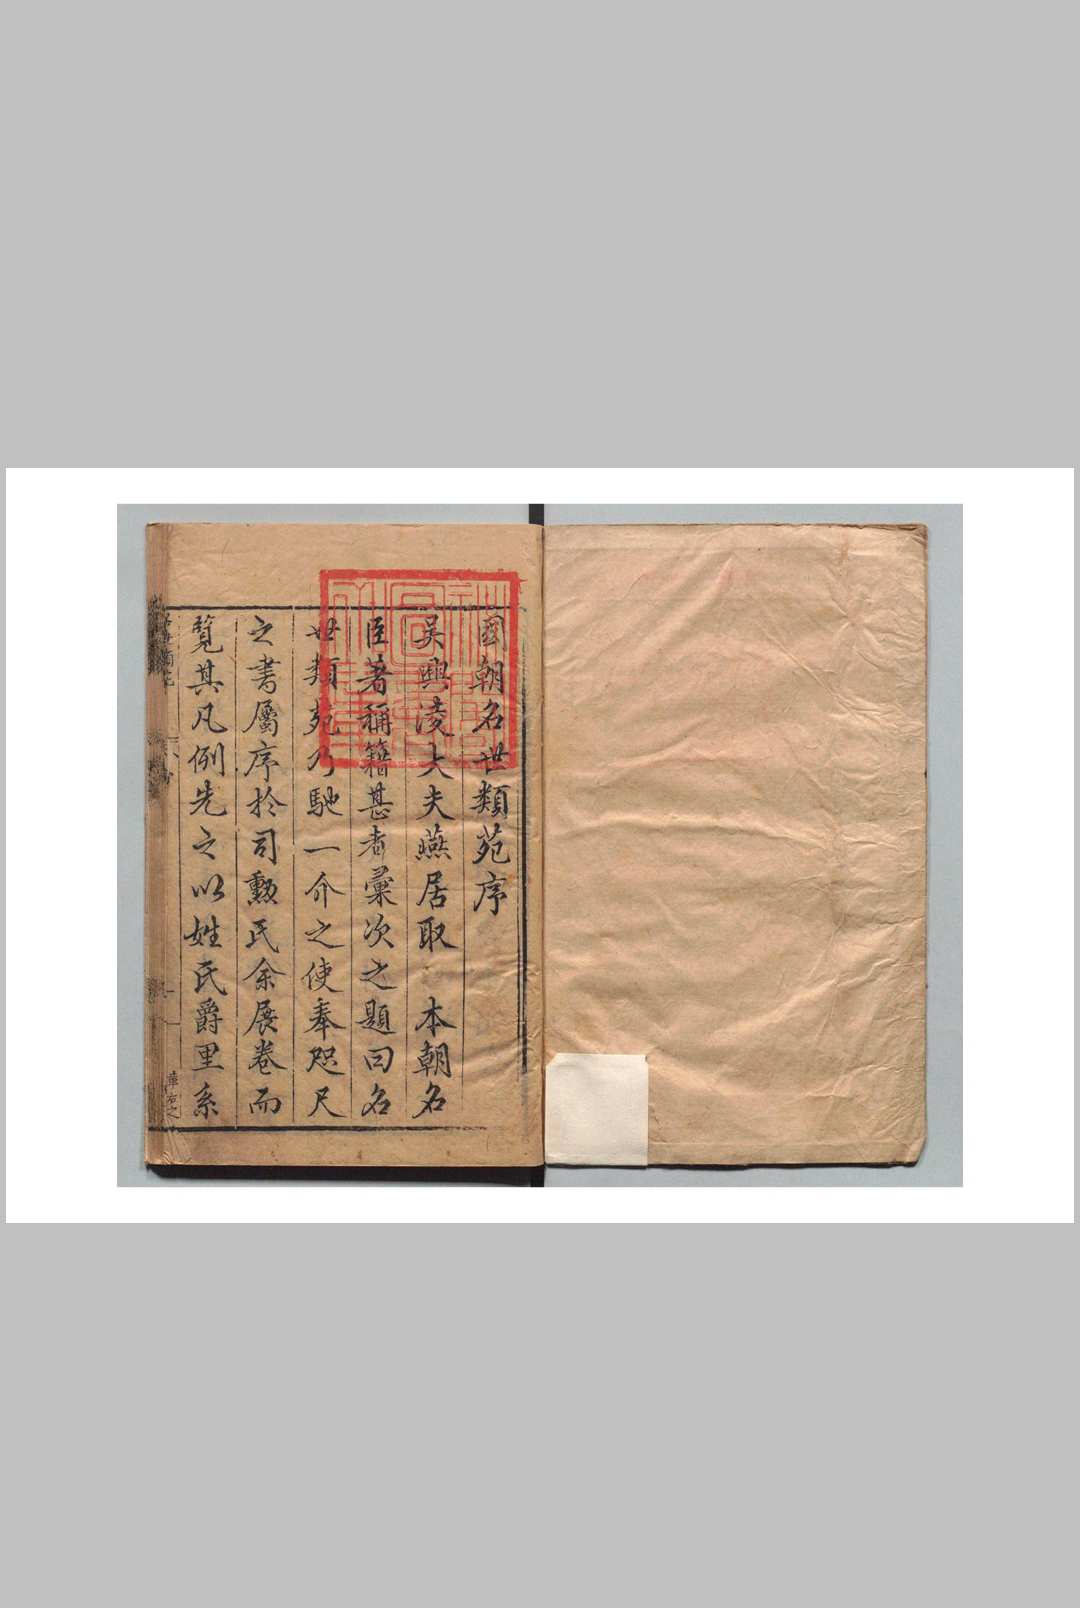 國朝名世類苑序
吳興淩大夫燕居取 本朝名
臣著稱籍甚者彙次之題曰名
世類苑乃馳一介之使奉咫尺
之書屬序於司勳氏余展卷而
覽其凡例先之以姓氏爵里系
名世類苑
序
一